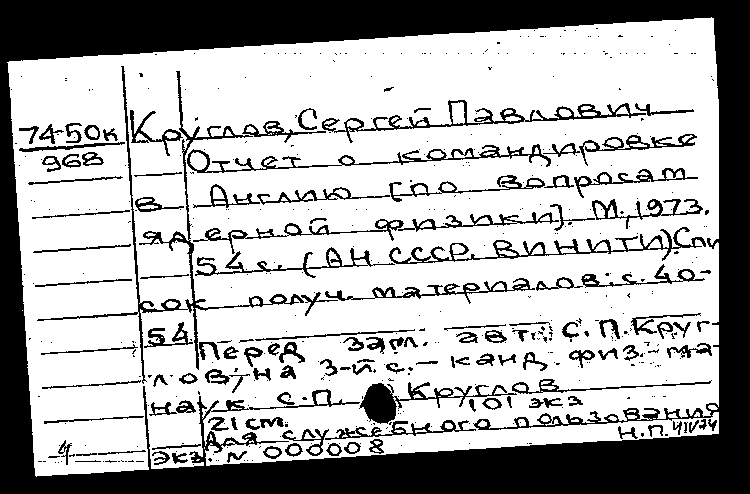 74-50к
968
Круглов, Сергей Павлович
Отчет о командировке
в Англию [по вопросам
ядерной физики]. М., 1973.
54 с. (АН СССР. ВИНИТИ). Спи
сок получ. материалов: с. 40-
54
Перед загл. авт.: С.П. Круг-
лов; на 3-й с. - канд. физ.-ма-
наук С.П. Круглов
21 см. 101 экз
Для служебного пользования
экз. N 000008
Н.П.